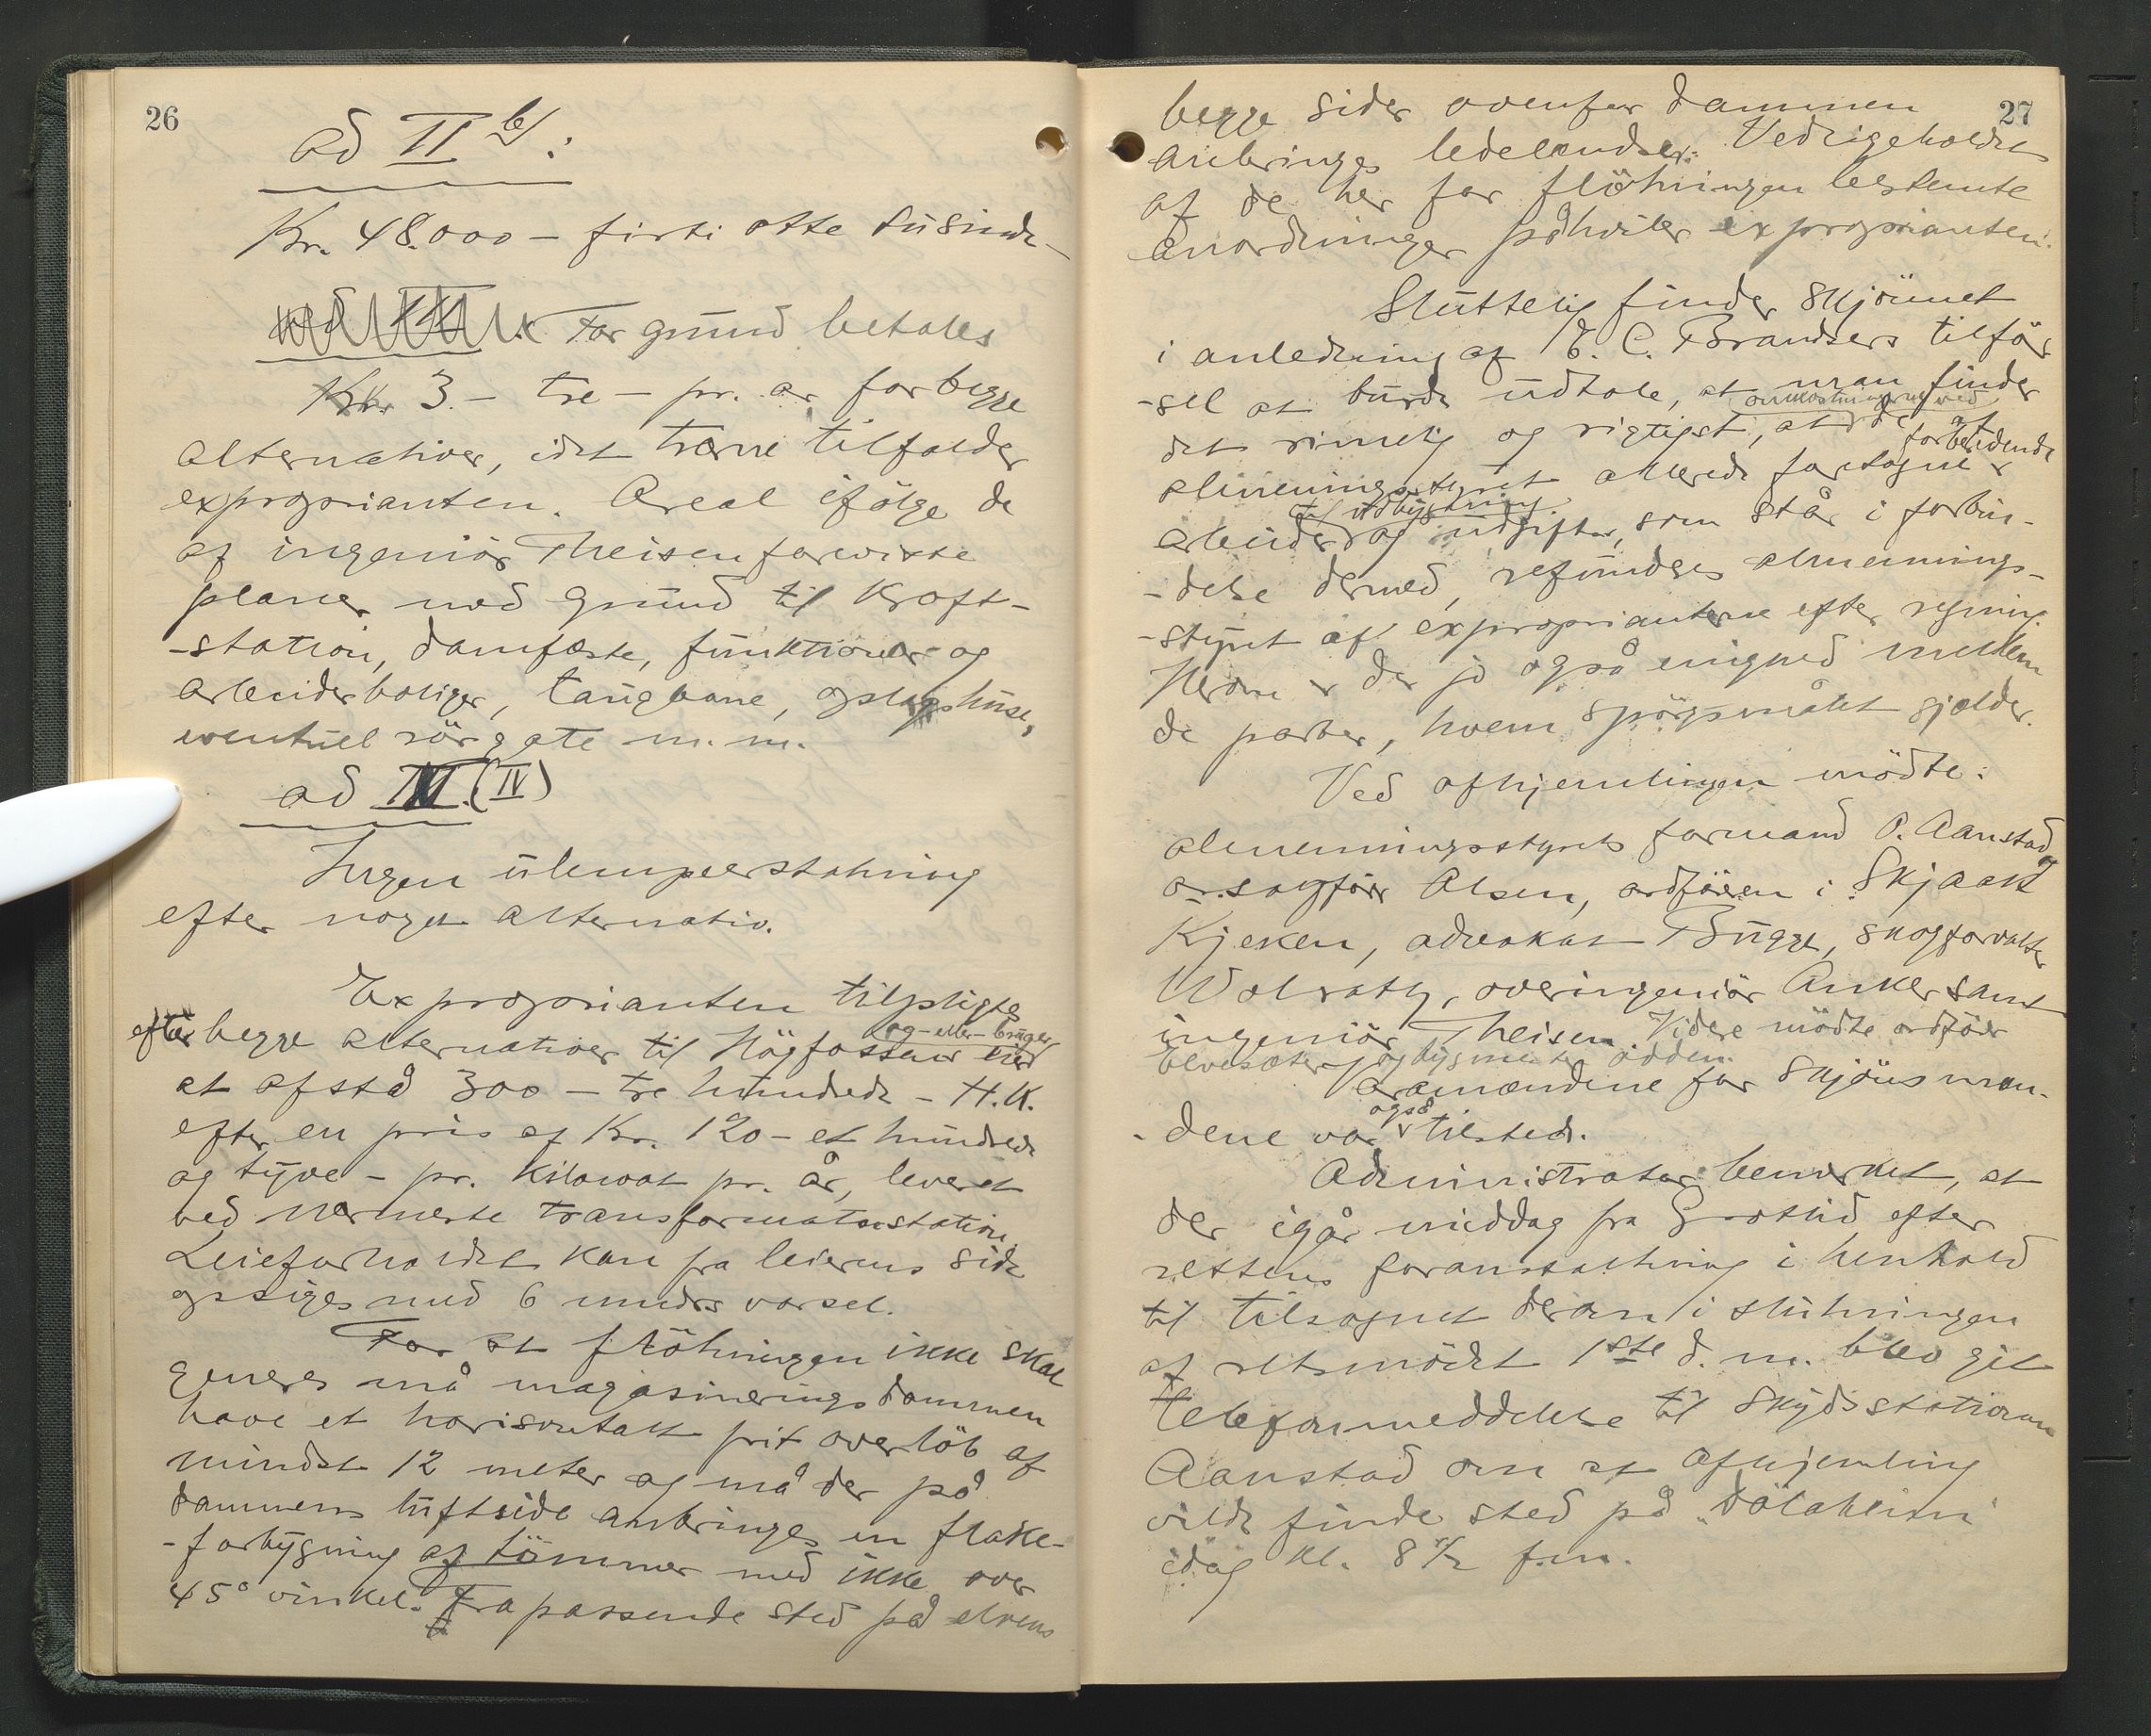 26
ad II b/:
Kr. 48.000 – firti otte tusinde –
For grund betales
Kr. 3. – tre – pr. ar for begge
alternativer, idet trærne tilfalder
exproprianten. Areal ifølge de
af ingeniør Theisen foreviste
planer med grund til kraft-
-station, damfæste, funktionær og
arbeiderboliger, taugbane, opslagshuse,
eventuel rörgate m. m.
ad III. (IV)
Ingen ulempeerstatning
efter noget alternativ.
Exproprianten tilpligtes
og-eller-bruger
efter begge alternativer til Högfossens eier
at afstå 300 – tre hundrede – H.K.
efter en pris af Kr. 120 – et hundrede
og tyve – pr. kilowat pr. år, leveret
ved nærmeste transformatorstation.
Leieforholdet kan fra leierens side
opsiges med 6 mndrs varsel.
For at flötningen ikke skal
generes må magasineringsdammen
have et horisontalt frit overlöb af
mindst 12 meter og må der på
dammens luftside anbringes en flake-
-forbygning af tömmer med ikke over
45° vinkel. Fra passende sted på elvens
27
begge sider ovenfor dammen
anbringes ledelendser. Vedligeholdet
af de her for flötningen bestemte
anordninger påhviler exproprianten.
Sluttelig finder skjönnet
i anledning af E. C. Brandsers tilför
-sel at burde udtale, at man finder
omkostningerne ved
det rimelig og rigtigst, at de af
forberedende
almenningsstyret allerede foretagne
til udbygning
arbeider og udgifter, som står i forbin-
-delse dermed, refunderes almennings-
-styret af exproprianterne efter regning.
Herom er der jo også enighed mellem
de parter, hvem spörgsmålet gjælder.
Ved afhjemlingen mödte:
almenningsstyrets formand O. Aanstad,
o.r.sagförer Olsen, ordföreren i Skjaak
Kjeken, advokat Bugge, skogforvalter
Wolrath, overingeniör Anker samt
ingeniör Theisen. Videre mödte ordförer
Elvesæter og bygmester Odden.
aramændene for skjönsmæn-
også
-dene var tilstede.
Administrator bemerket, at
der igår middag fra Grotlid efter
rettens foranstaltning i henhold
til tilsagnet derom i slutningen
af retsmödet 1ste d. m. blev git
telefonmeddelelse til skydsstationen
Aanstad om at afhjemling
vilde finde sted på "Dölaheim"
idag kl. 8 1/2 f.m.